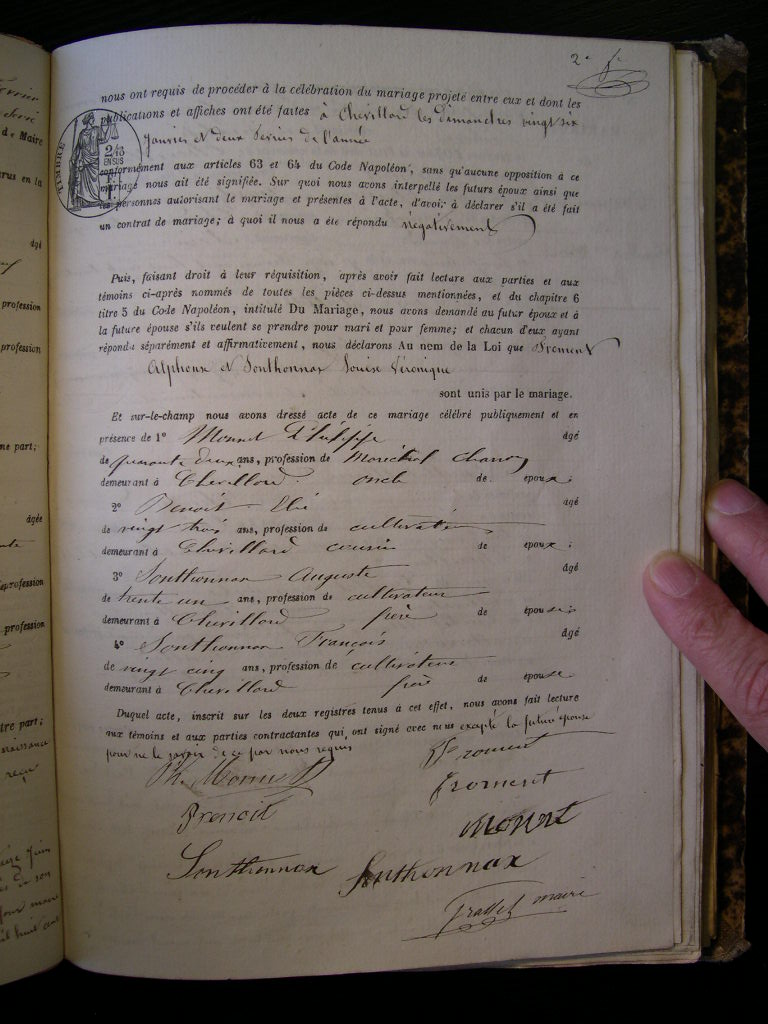 2e f.
nous ont requis de procéder à la célébration du mariage projeté entre eux et dont les
publications et affiches ont été faites à Chevillard les dimanches vingt six
janvier et deux février de l'année
conformément aux articles 63 et 64 du Code Napoléon, sans qu'aucune opposition à ce
mariage nous ait été signifiée. Sur quoi nous avons interpellé les futurs époux ainsi que
les personnes autorisant le mariage et présentes à l'acte, d'avoir à déclarer s'il a été fait
un contrat de mariage; à quoi il nous a été répondu négativement
Puis, faisant droit à leur réquisition, après avoir fait lecture aux parties et aux
témoins ci-après nommés de toutes les pièces ci-dessus mentionnées, et du chapitre 6
titre 5 du Code Napoléon, intitulé Du Mariage, nous avons demandé au futur époux et à
la future épouse s'ils veulent se prendre pour mari et pour femme; et chacun d'eux ayant
répondu séparément et affirmativement, nous déclarons Au nom de la Loi que Froment
Alphonse et Sonthonnax Louise Véronique
sont unis par le mariage.
Et sur-le-champ nous avons dressé acte de ce mariage célébré publiquement et en
présence de 1° Monnet Philippe âgé
de quarante deux ans, profession de Maréchal
demeurant à Chevillard oncle de époux;
2° Benoit Elie âgé
de vingt trois ans, profession de cultivateur
demeurant à Chevillard cousin de époux;
3° Sonthonnax Auguste âgé
de trente un ans, profession de cultivateur
demeurant à Chevillard frère de épouse;
4° Sonthonnax François âgé
de vingt cinq ans, profession de cultivateur
demeurant à Chevillard frère de épouse
Duquel acte, inscrit sur les deux registres tenus à cet effet, nous avons fait lecture
aux témoins et aux parties contractantes qui ont signé avec nous excepté la future épouse
pour ne le savoir de ce par nous requis
Ph. Monnet Froment
Froment
Benoit
Monnet
Sonthonnax Sonthonnax
maire
TIMBRE
EN SUS
de Maire
âgé
profession
profession
ne part;
âgée
profession
tre part;